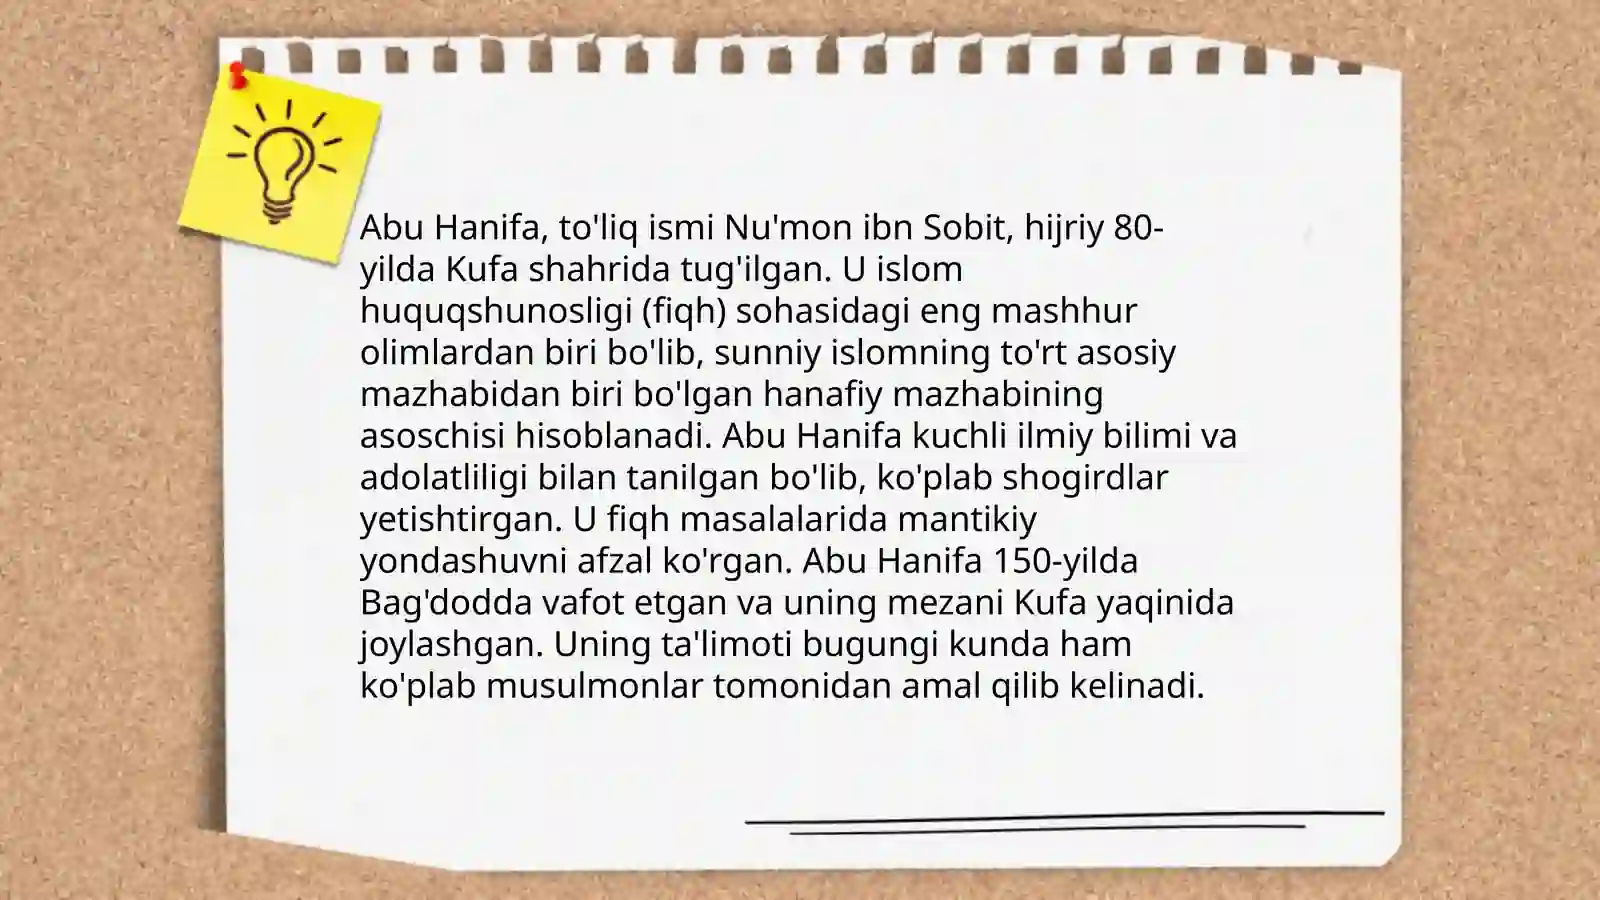 Abu Hanifa, to'liq ismi Nu'mon ibn Sobit, hijriy 80-
yilda Kufa shahrida tug'ilgan. U islom
huquqshunosligi (fiqh) sohasidagi eng mashhur
olimlardan biri bo'lib, sunniy islomning to'rt asosiy
mazhabidan biri bo'lgan hanafiy mazhabining
asoschisi hisoblanadi. Abu Hanifa kuchli ilmiy bilimi va
adolatliligi bilan tanilgan bo'lib, ko'plab shogirdlar
yetishtirgan. U fiqh masalalarida mantikiy
yondashuvni afzal ko'rgan. Abu Hanifa 150-yilda
Bag'dodda vafot etgan va uning mezani Kufa yaqinida
joylashgan. Uning ta'limoti bugungi kunda ham
ko'plab musulmonlar tomonidan amal qilib kelinadi.